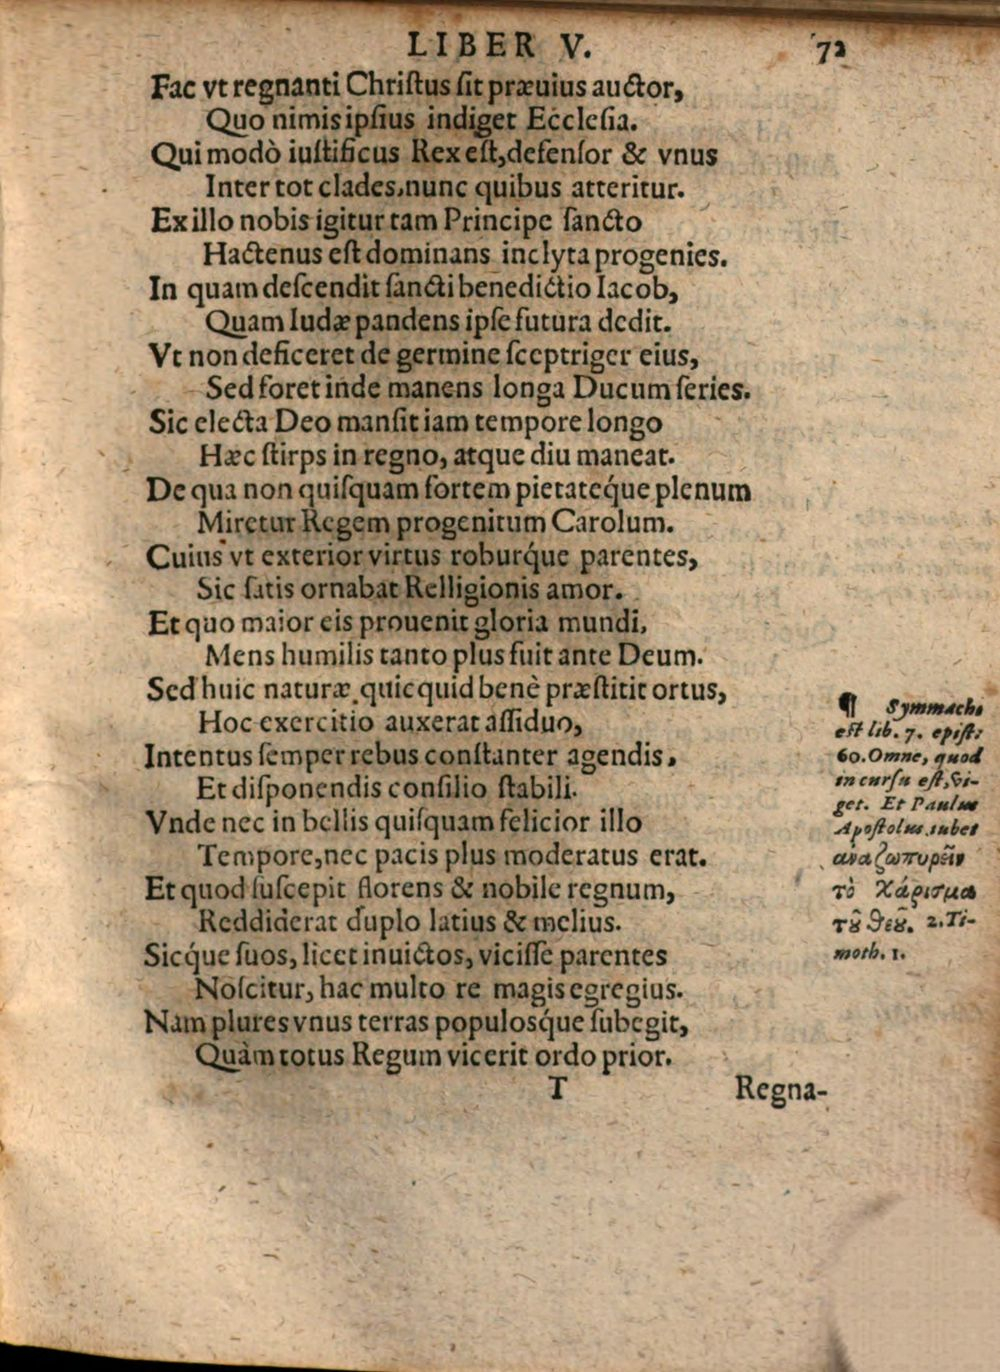 LIBER V. 72
Fac vt regnanti Chriſtus ſit præuius auctor,
Quo nimis ipſius indiget Eccleſia.
Qui modò iuſtificus Rex eſt, defenſor & vnus
Inter tot clades, nunc quibus atteritur.
Ex illo nobis igitur tam Principe ſancto
Hactenus eſt dominans inclyta progenies.
In quam deſcendit ſancti benedictio Iacob,
Quam Iudæ pandens ipſe futura dedit.
Vt non deficeret de germine ſceptriger eius,
Sed foret inde manens longa Ducum ſeries.
Sic electa Deo manſit iam tempore longo
Hæc ſtirps in regno, atque diu maneat.
De qua non quiſquam fortem pietateq́ue plenum
Miretur Regem progenitum Carolum.
Cuius vt exterior virtus roburq́ue parentes,
Sic ſatis ornabat Relligionis amor.
Et quo maior eis prouenit gloria mundi,
Mens humilis tanto plus fuit ante Deum.
Sed huic naturæ quicquid benè præſtitit ortus,
Hoc exercitio auxerat aſſiduo,
Intentus ſemper rebus conſtanter agendis,
Et diſponendis conſilio ſtabili.
Vnde nec in bellis quiſquam felicior illo
Tempore, nec pacis plus moderatus erat.
Et quod ſuſcepit florens & nobile regnum,
Reddiderat duplo latius & melius.
Sicq́ue ſuos, licet inuictos, viciſſe parentes
Noſcitur, hac multo re magis egregius.
Nam plures vnus terras populosq́ue ſubegit,
Quàm totus Regum vicerit ordo prior.
T Regna-
¶ Symmachi
eſt lib. 7. epiſt:
60. Omne, quod
in curſu eſt, vi-
get. Et Paulus
Apoſtolus iubet
ἀναζωπυρεῖν
τὸ χάρισμα
τȣ͂ θεȣ͂. 2. Ti-
moth. 1.